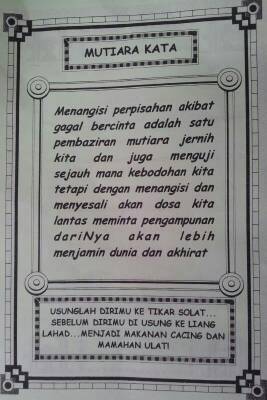 MUTIARA KATA
Menangisi perpisahan akibat
gagal bercinta adalah satu
pembaziran mutiara jernih
kita dan juga menguji
sejauh mana kebodohan kita
tetapi dengan menangisi dan
menyesali akan dosa kita
lantas meminta pengampunan
dariNya akan lebih
menjamin dunia dan akhirat
USUNGLAH DIRIMU KE TIKAR SOLAT...
SEBELUM DIRIMU DI USUNG KE LIANG
LAHAD...MENJADI MAKANAN CACING DAN
MAMAHAN ULAT!